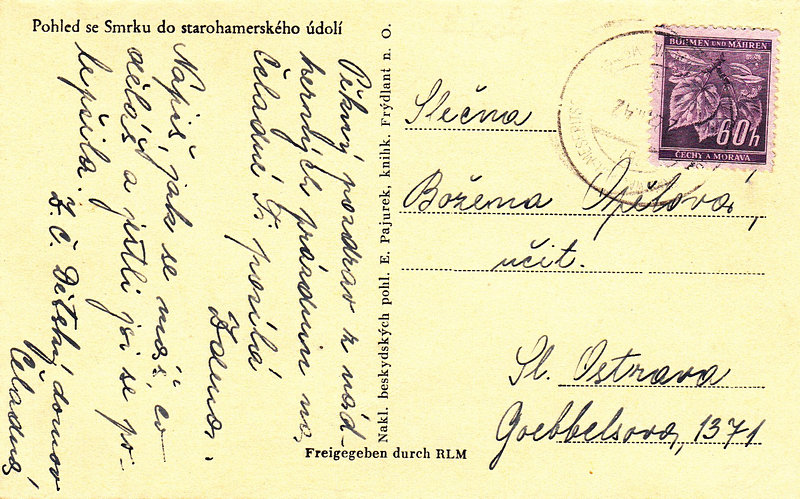 Pohled se Smrku do starohamerského údolí
Pěkný pozdrav z nád-
herných prázdnin na
Čeladné Ti posílá
Zdena.
Napiš, jak se máš, co
děláš a jestli jsi se po-
lepšila.
Z. Č. Dětský domov
Čeladná
Nakl. beskydských pohl. E. Pajurek, knihk. Frýdlant n. O.
Freigegeben durch RLM
BÖHMEN UND MÄHREN
60h
ČECHY A MORAVA
Slečna
Božena Opělová,
učit.
Sl. Ostrava
Goebbelsova, 1371